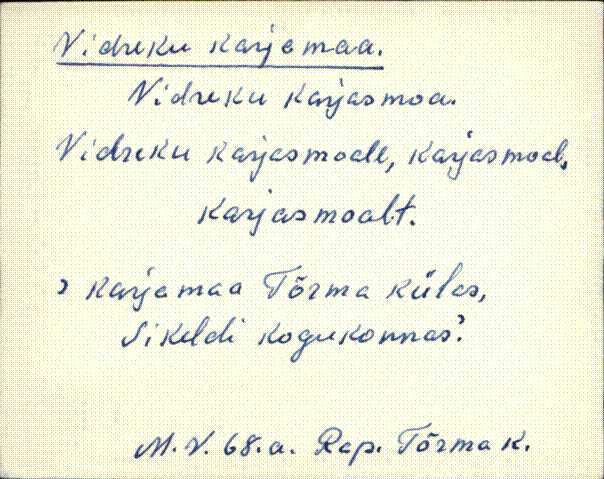 Vidreku karjamaa.
Vidreku karjasmoa.
Vidreku karjasmoale, karjasmoal,
karjasmoalt.
› karjamaa Tõrma külas,
Sikeldi kogukonnas?
M.V. 68.a. Rap. Tõrma k.